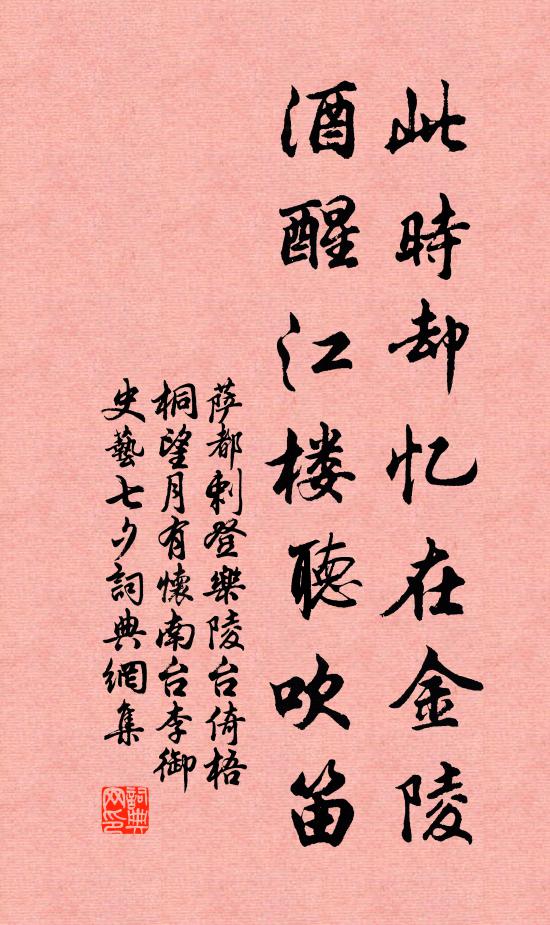 此時却忆在金陵
酒醒江楼聽吹笛
萨都剌登樂陵台倚梧
桐望月有懷南台李御
史藝七夕詞典網集
詞典
网印